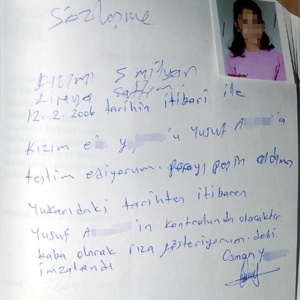 Sözleşme
Kızımı 5 milyar
liraya sattım
12.2.2006 tarihin itibari ile
Kızım e y 'u Yusuf A 'a
teslim ediyorum. parayı peşin aldım
Yukarıdaki tarihten itibaren
Yusuf A in kontrolunda olacaktır
baba olarak rıza gösteriyorum. dedi.
imzalandı Osman Y